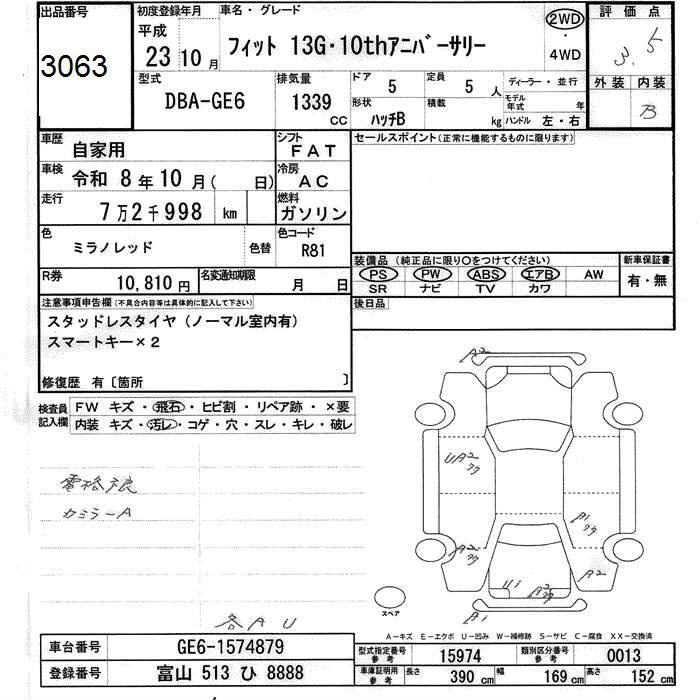 出品番号
3063
初度登録年月
平成
23 10 月
車名・グレード
フィット 13G・10thアニバーサリー
2WD
・
4WD
評価点
3.5
外装 内装
B
型式
DBA-GE6
排気量
1339
CC
ドア
5
定員
5 人
形状
ハッチB
積載
kg
ディーラー・並行
モデル年式 年
ハンドル 左・右
車歴
自家用
シフト
FAT
車検
令和 8 年 10 月( 日)
冷房
AC
走行
7万2千998 km
燃料
ガソリン
色
ミラノレッド
色替
色コード
R81
R券
10,810 円
名変通知期限
月 日
セールスポイント(正常に機能するものに限ります)
装備品 (純正品に限り○をつけてください)
PS PW ABS エアB AW
SR ナビ TV カワ
新車保証書
有・無
後日品
注意事項申告欄(不具合内容等は具体的に記入して下さい)
スタッドレスタイヤ(ノーマル室内有)
スマートキー×2
修復歴 有〔箇所 〕
検査員記入欄
FW キズ・飛石・ヒビ割・リペア跡・×要
内装 キズ・汚レ・コゲ・穴・スレ・キレ・破レ
カミラーA
各AU
A2
UA2
A2
A1
A2
U1
A2
A1
スペア
A-キズ E-エクボ U-凹み W-補修跡 S-サビ C-腐食 XX-交換済
車台番号
GE6-1574879
登録番号
富山 513 ひ 8888
型式指定番号
参考
15974
類別区分番号
参考
0013
車庫証明用
参考
長さ
390 cm
幅
169 cm
高さ
152 cm